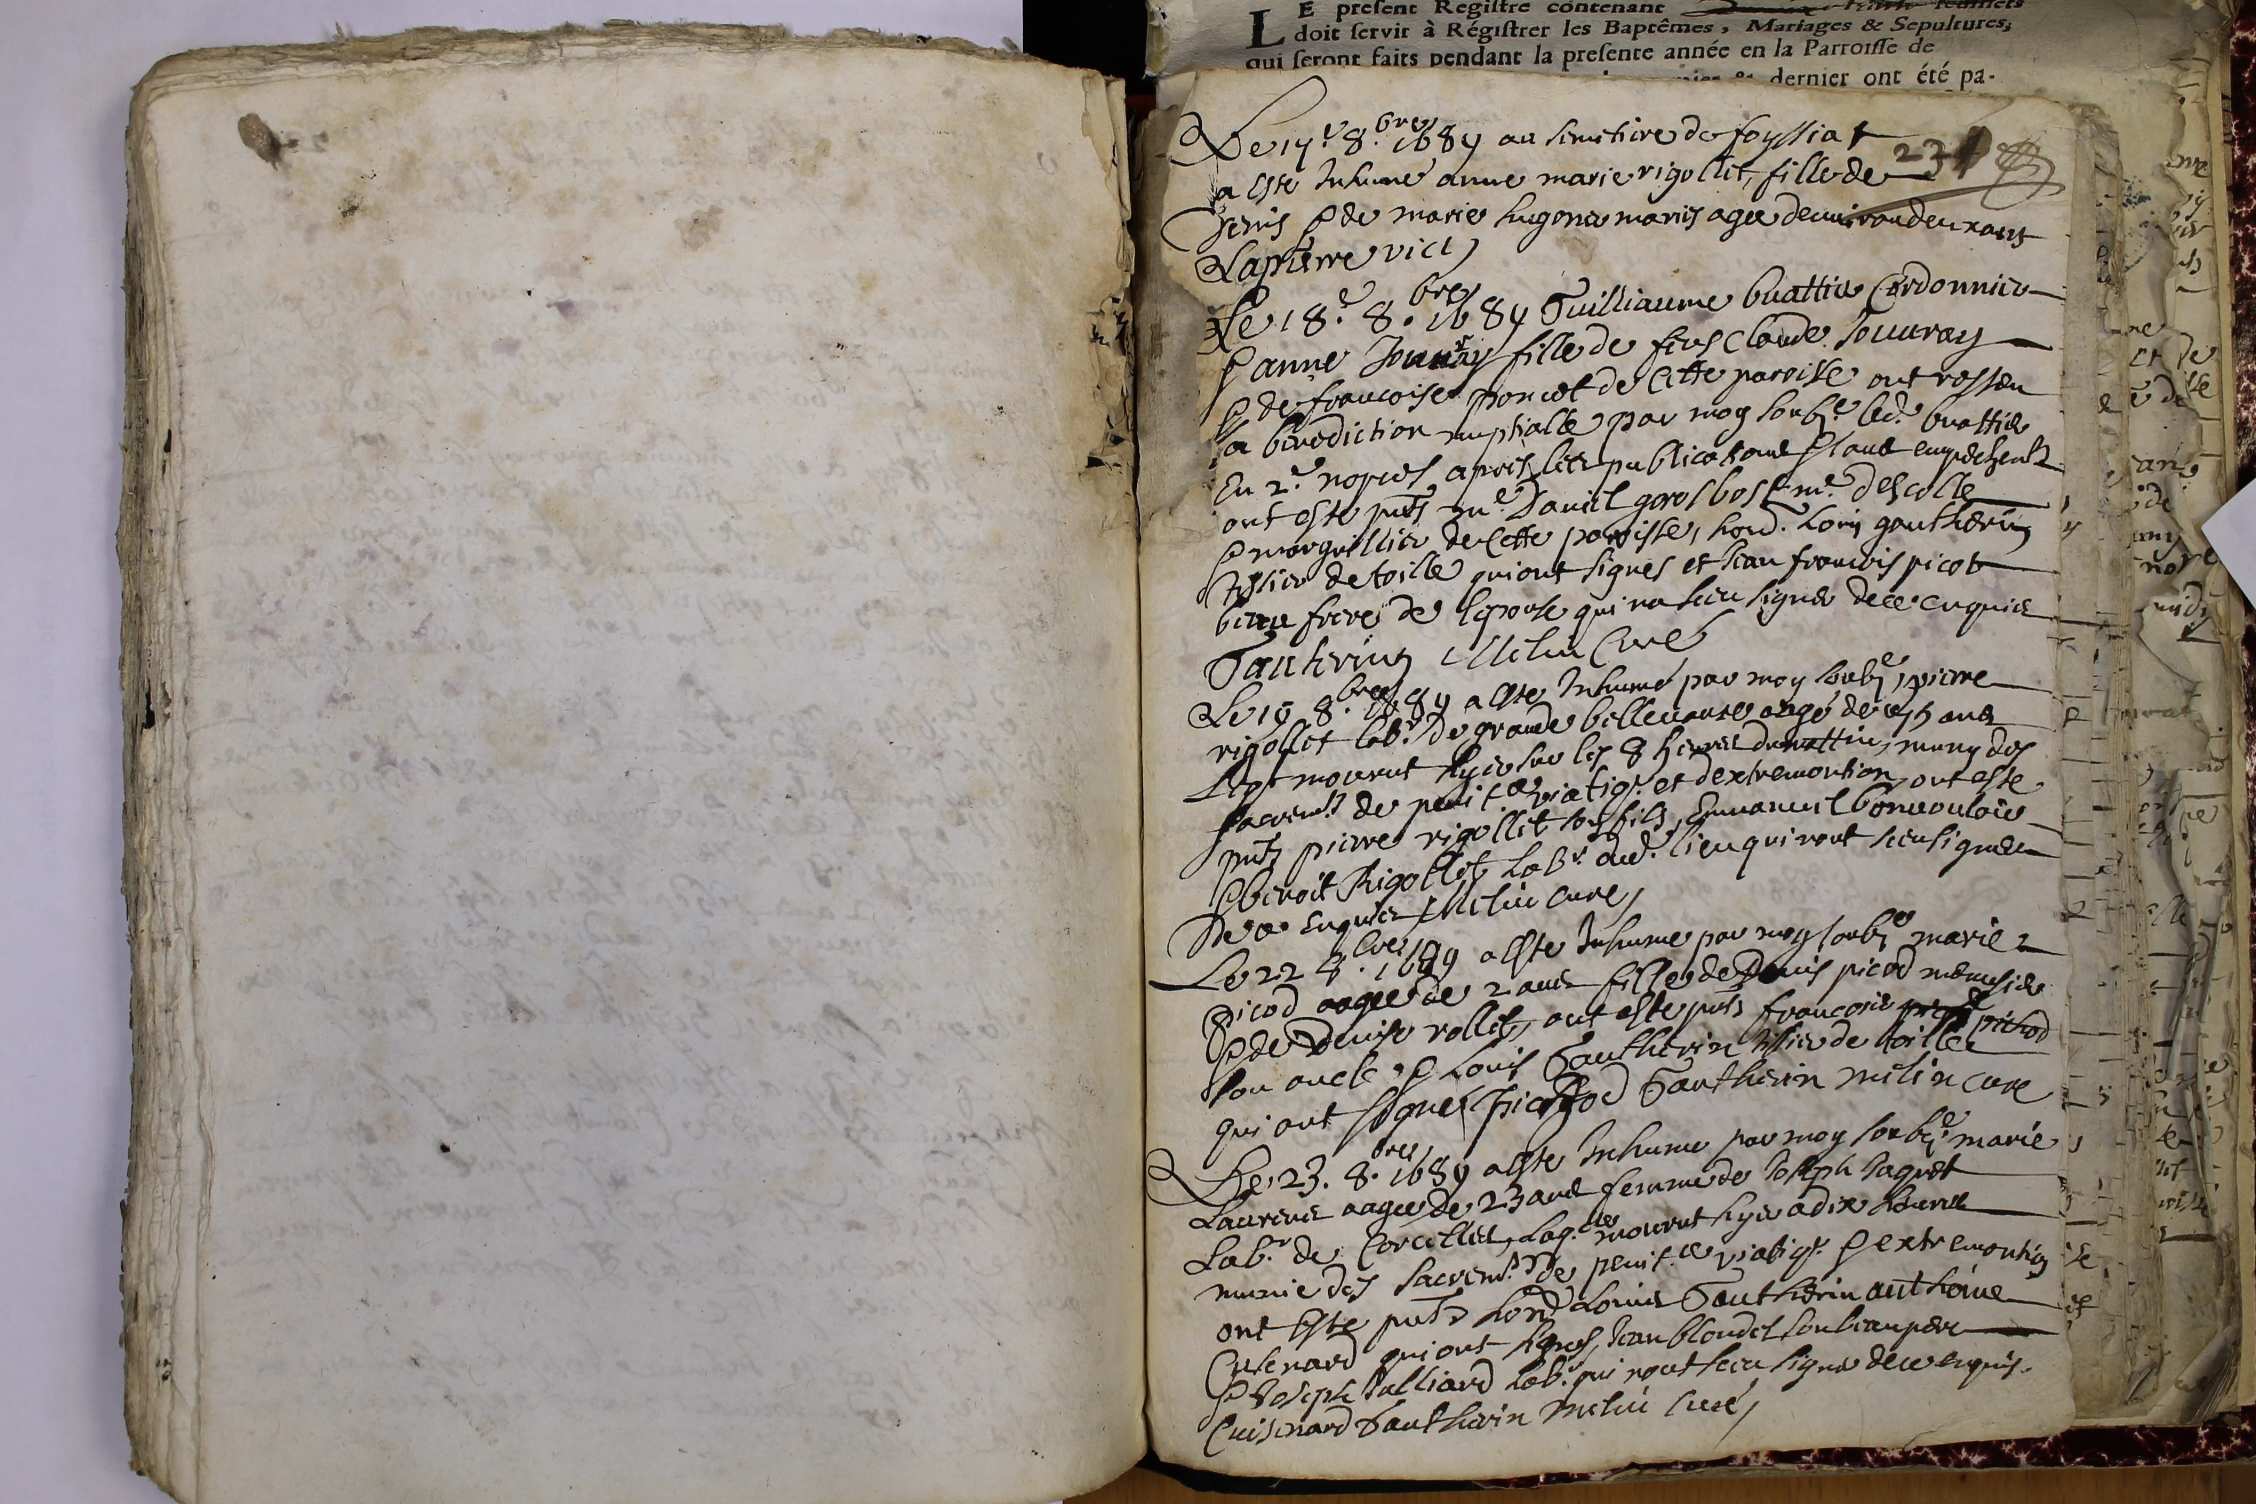 LE present Registre contenant
doit servir à Régistrer les Baptêmes, Mariages & Sepultures,
qui seront faits pendant la presente année en la Parroisse de
dernier ont été pa-
234
Le 17.e 8.bre 1689 au semetiere de foyssiat
a este Inhume anne marie rigollet, fille de
denis & de marie hugone mariés agee denviron deux ans
Lapierre vic
Le 18.e 8.bre 1689 Guilliaume buattier Cordonnier
& anne Jouuray fille de feus Claude Jouuray
& de francoise poncet de Cette paroisse ont resseu
la benediction nuptialle par moy soubs.e led. buattier
En 2.e nopces apres les publications sans empechent
ont este pnts m.e Daniel grosbost m.e descolle
& marguillier de Cette paroisse, hon.d Louis gautherin
tissier de toille qui ont signes et Jean francois picot
beau frere de lepouse qui na sceu signer de ce enquis
Gautherin Melin Cure
Le 19 8.bre 1689 a este Inhumé par moy soubs.e pierre
rigollet lab.r de grande bellevaure aagé de ans
Lequel mourut hyer sur les 8 heures du mattin, muny des
sacrem.ts de penit.ce viatiq. et dextremontion, ont este
pnts pierre rigollet son fils, Emmanuel bonvouloir
& benoit Rigollet Lab.r dud. lieu qui nont sceu signer
De ce enquis Melin cure
Le 22 8.bre 1689 a este Inhume par moy soubs.e marie
picod aagee de 2 ans fille de Denis picod menusier
& de Denise rollet, ont este pnts francois pichod
son oncle & Louis Gautherin tissier de toille
qui ont signes pichod Gautherin melin cure
Le 23. 8.bre 1689 a este Inhume par moy soubs.e marie
Laurens aagee de 23 ans femme de Joseph Jagnet
Lab.r de Corcelles, laq.lle mourut hyer a dix heures
munie des sacrem.ts de penit.ce viatiq. & extremontion
ont este pnts hon.d Louis Gautherin anthoine
Cuisenard qui ont signes, Jean blondel son beau pere
& Joseph Julliard lab.r qui nont sceu signer de ce enquis.
Cuisenard Gautherin melin Curé